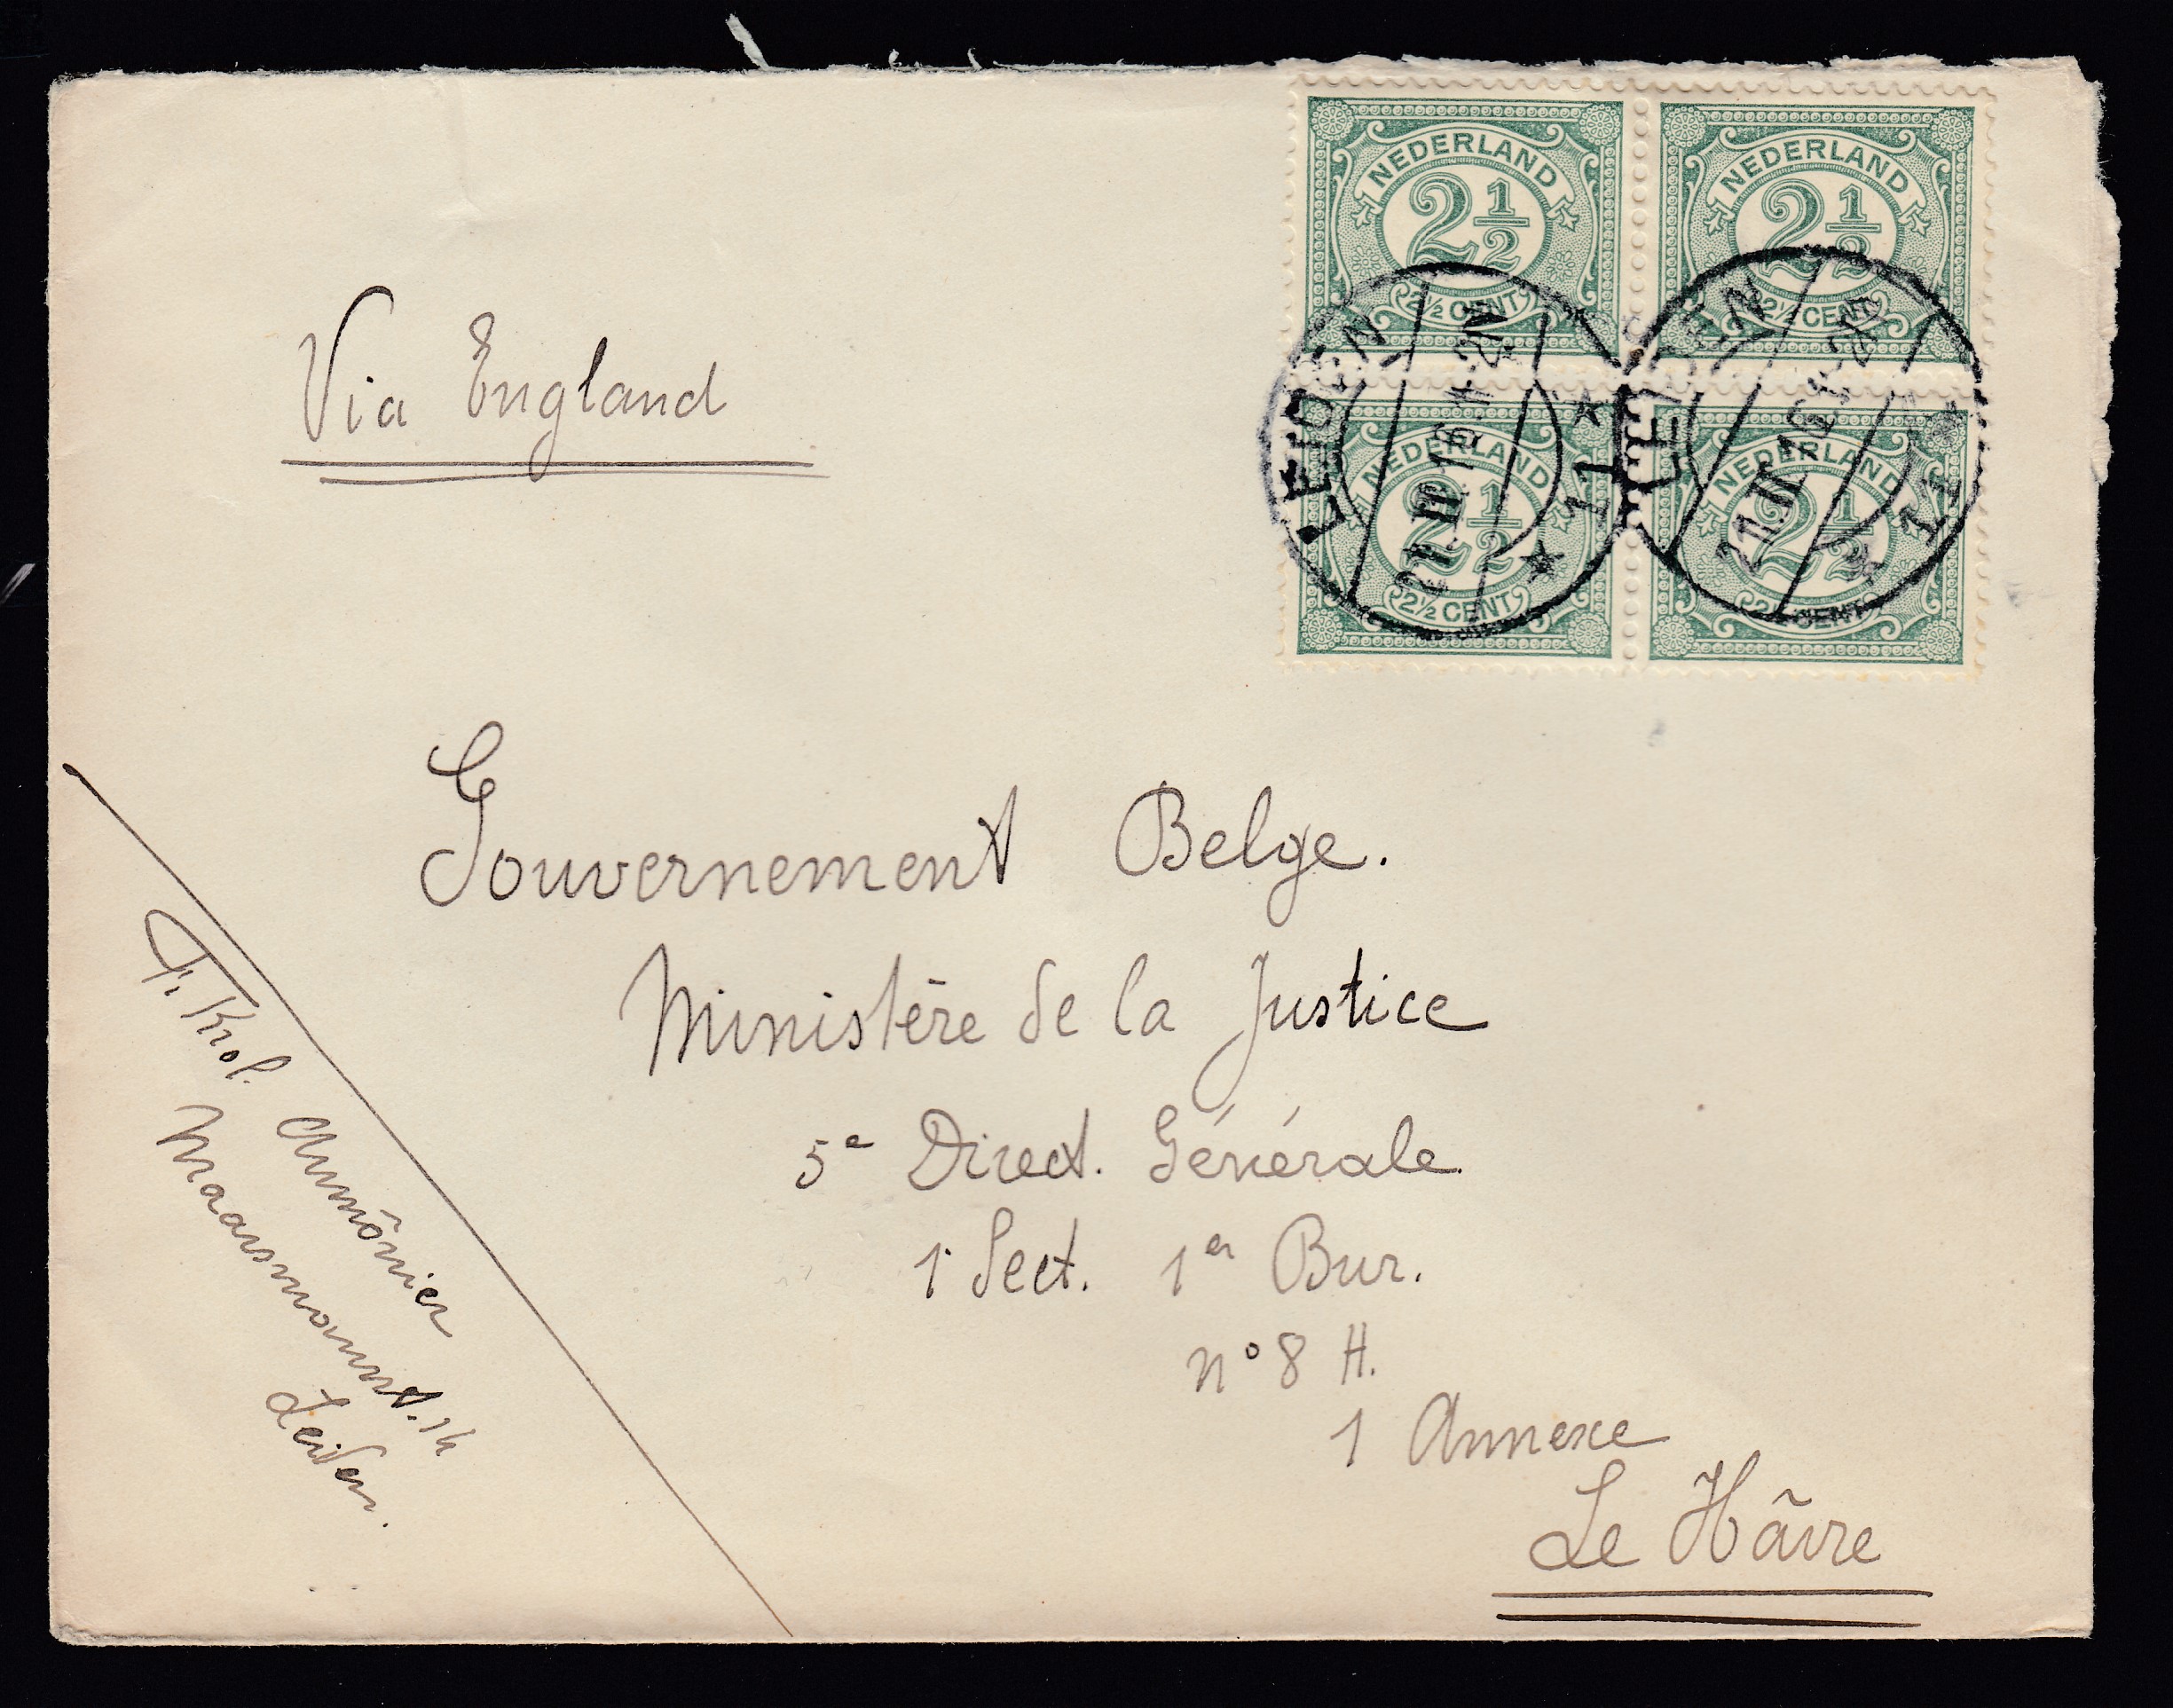 NEDERLAND
2 1/2
2½ CENT
NEDERLAND
2 1/2
2½ CENT
NEDERLAND
2 1/2
2½ CENT
NEDERLAND
2 1/2
2½ CENT
LEIDEN
LEIDEN
Via England
Gouvernement Belge.
Ministère de la Justice
5e Direct. Générale
1 Sect. 1er Bur.
n° 8 H.
1 Annexe
Le Hâvre
Krol. Aumônier
Leiden.